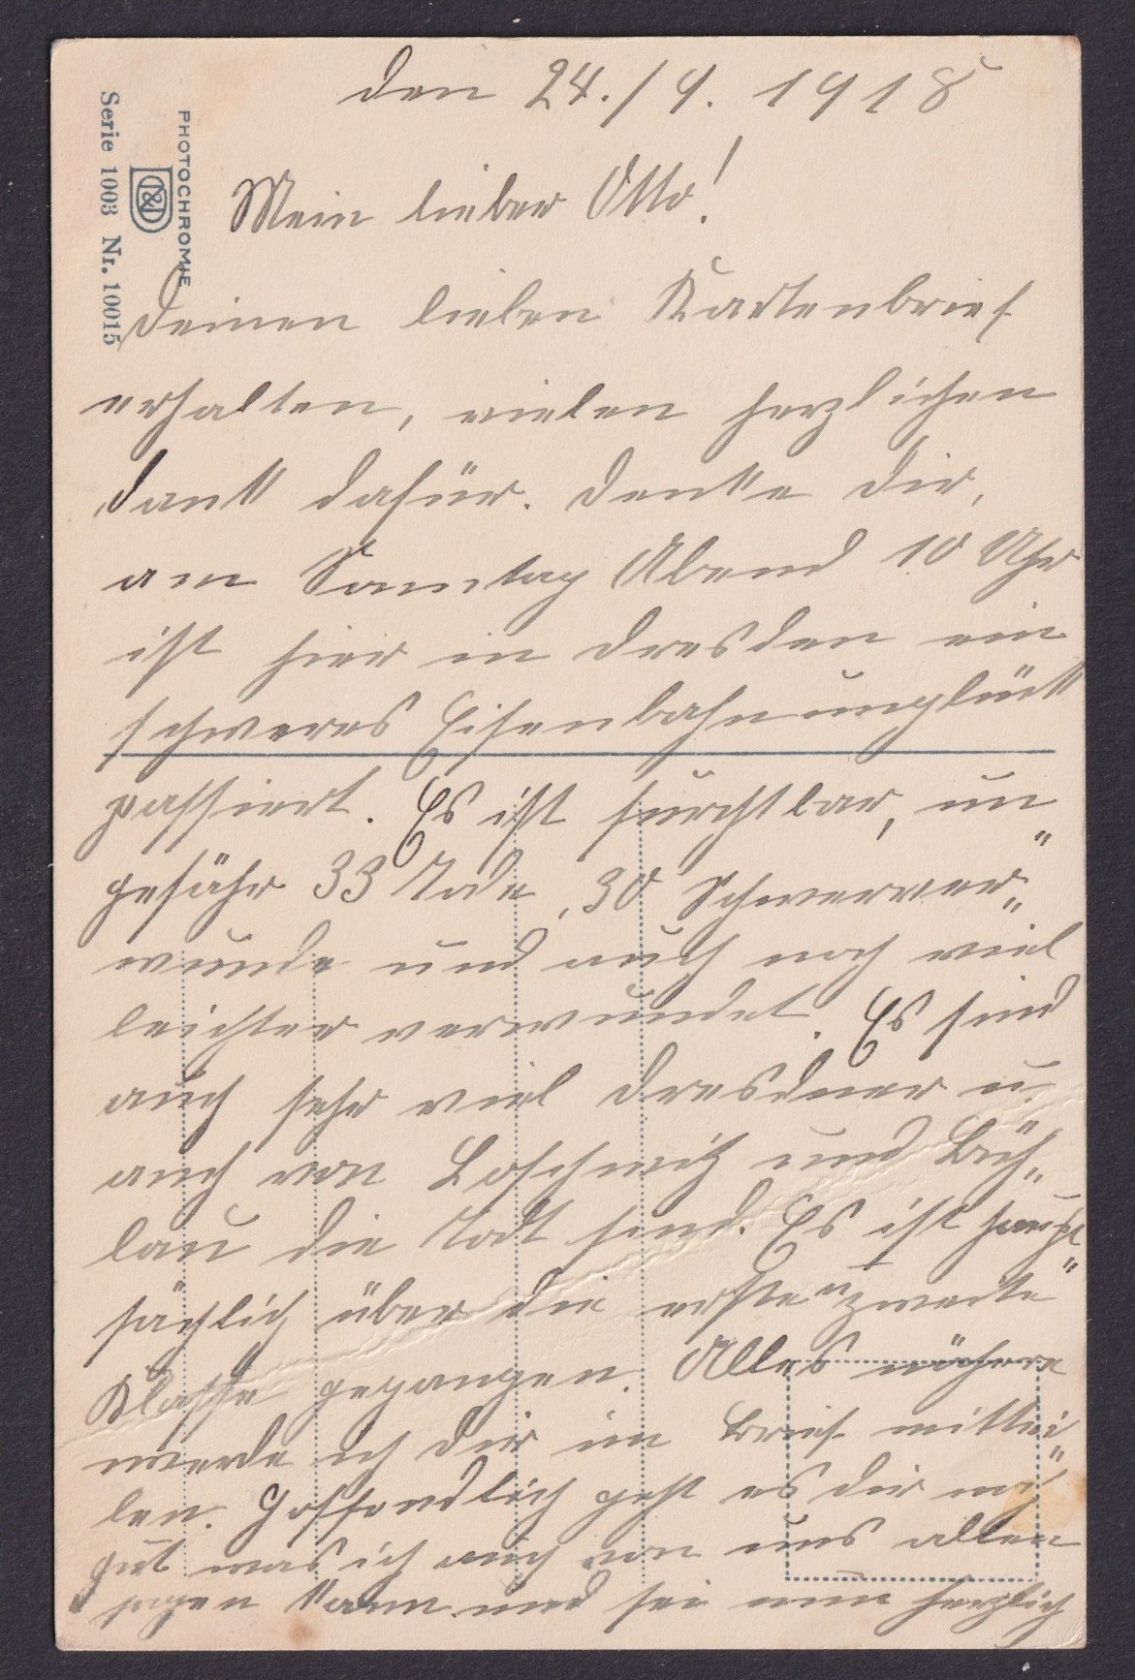 den 24./9. 1918
Mein lieber Otto!
PHOTOCHROMIE
Serie 1003 Nr. 10015
Deinen lieben Kartenbrief
erhalten, vielen herzlichen
Dank dafür. Denke Dir,
am Sonntag Abend 10 Uhr
ist hier in Dresden ein
schweres Eisenbahnunglück
passiert. Es ist furchtbar, un"
gefähr 33 Tode, 30 Schwerver"
wunde und auch noch viel
leichter verwundet. Es sind
auch sehr viel Dresdner u.
auch von Loschwitz und Büh"
lau die Todt sind. Es ist haupt"
sächlich über die erste u zweite
Klasse gegangen. Alles nähere
werde ich Dir im Brief mittei"
len. Hoffendlich geht es Dir noch
gut was ich auch von uns allen
sagen kann und sei nun herzlich